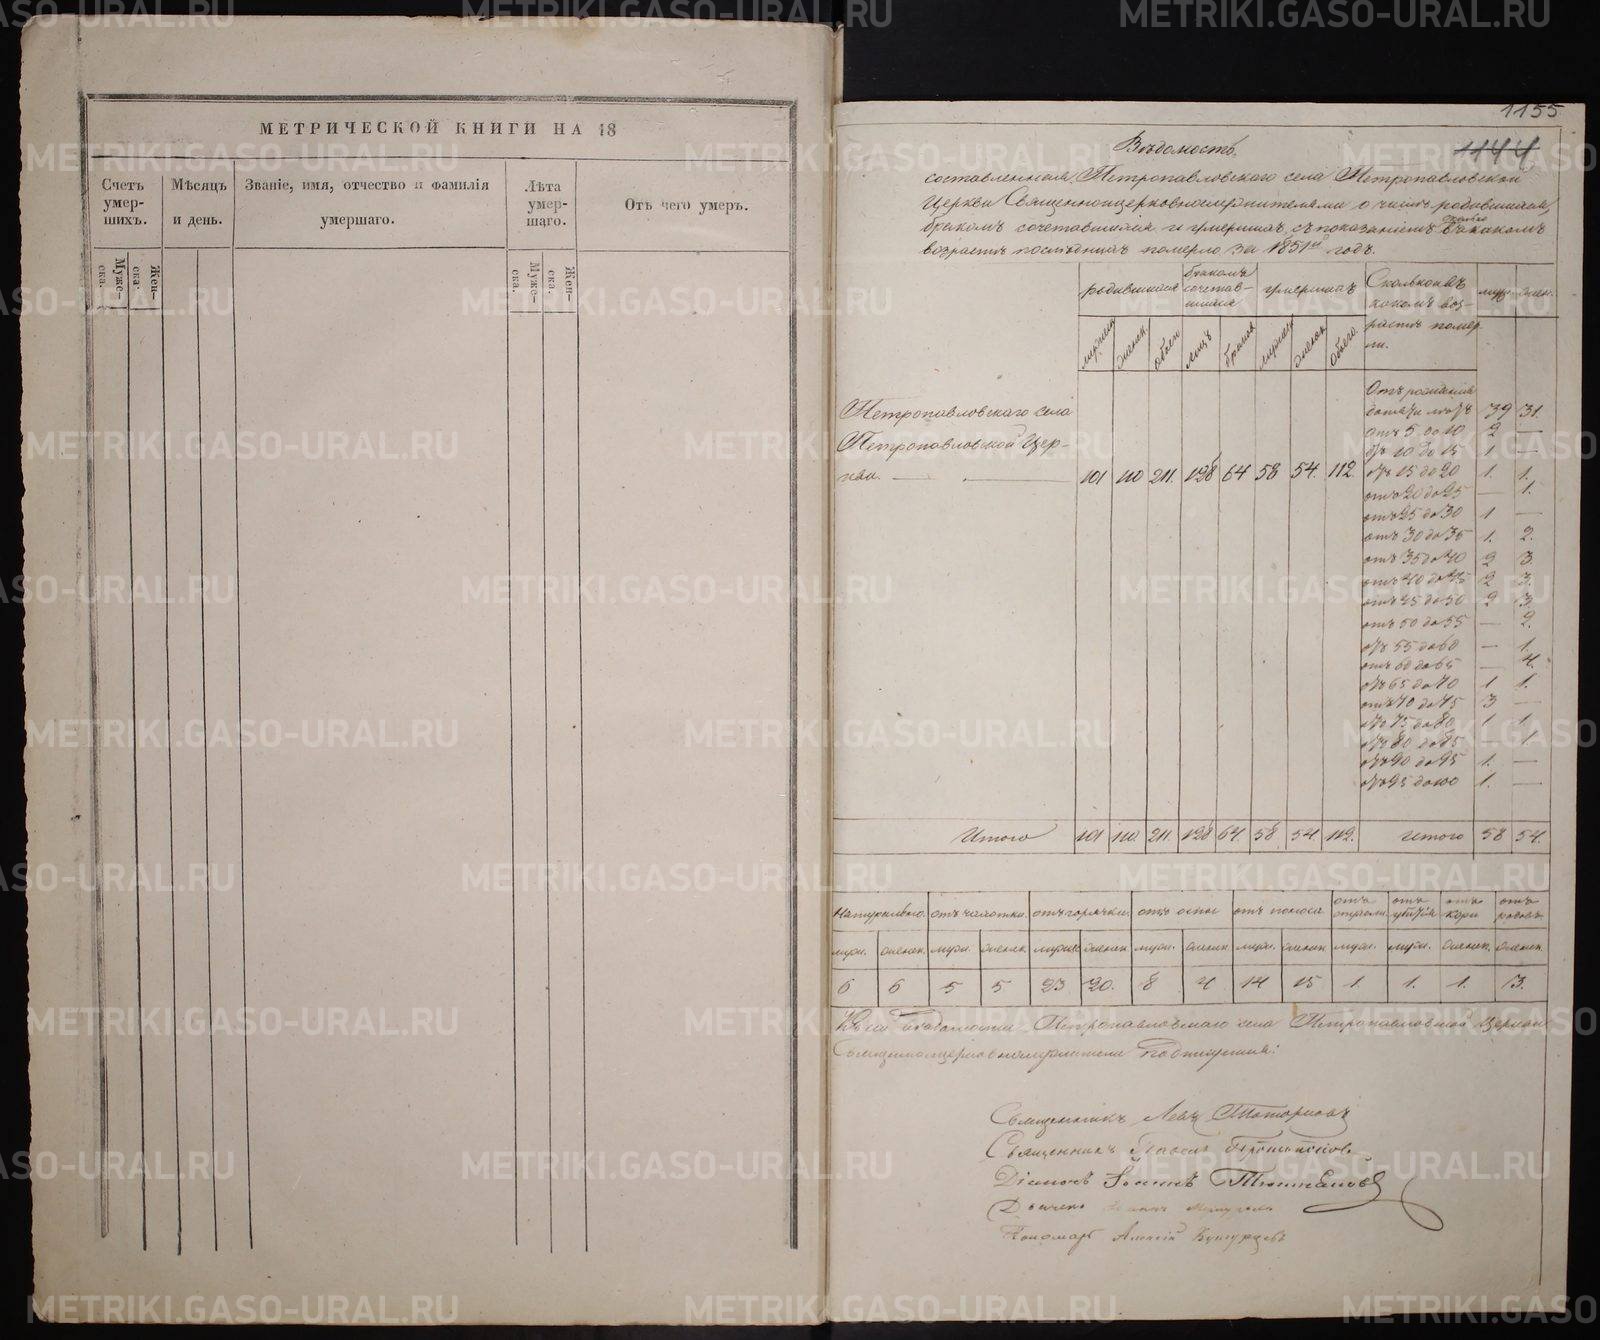 МЕТРИЧЕСКОЙ КНИГИ НА 18
Счетъ умер-шихъ.
Мѣсяцъ и день.
Званіе, имя, отчество и фамилія умершаго.
Лѣта умер-шаго.
Отъ чего умеръ.
Муже-ска.
Жен-ска.
Муже-ска.
Жен-ска.
1155
1144
Вѣдомость.
составленная Петропавловскаго села Петропавловской
Церкви Священноицерковнослужителями о числѣ родившихся,
бракомъ сочетавшихся и умершихъ, съ показаніемъ сколько въ какомъ
возрастѣ послѣднихъ померло за 1851й годъ.
родившихся
бракомъ сочетав-шихся
умершихъ
Сколько въ какомъ воз-растѣ помер-ли.
муж.
женск.
мужск
женск.
обоего
лицъ
браковъ
мужск
женск
обоего.
Отъ рожденія до пяти лѣтъ 39 31.
отъ 5 до 10 2 —
отъ 10 до 15 1. —
отъ 15 до 20 1. 1.
отъ 20 до 25 — 1.
отъ 25 до 30 1 —
отъ 30 до 35 1. 2.
отъ 35 до 40 2 3.
отъ 40 до 45 2 3.
отъ 45 до 50 2 3.
отъ 50 до 55 — 2.
отъ 55 до 60 — 1.
отъ 60 до 65 — 4.
отъ 65 до 70 1 1.
отъ 70 до 75 3 —
отъ 75 до 80 1 1.
отъ 80 до 85 — 1
отъ 90 до 95 1. —
отъ 95 до 100 1. —
Петропавловскаго села
Петропавловской Цер-
кви. — — 101 110 211. 128 64 58 54. 112.
Итого 101 110. 211. 128 64. 58 54 112. итого 58 54.
Натурально. отъ чахотки. отъ горячки. отъ оспы отъ поноса отъ отравы. отъ убитія отъ кори отъ родовъ
муж. женск. муж. женск. мужск женск муж. женск. муж. женск муж. муж. женск. женск.
6 6 5 5. 23 20. 8 4 14 15 1. 1. 1. 3.
Къ сей Вѣдомости Петропавловскаго села Петропавловской Церкви
Священноицерковнослужители подписуемся:
Священникъ Левъ
Священникъ
Діаконъ Іоаннъ
Дьячекъ
Пономарь Алексій
METRIKI.GASO-URAL.RU